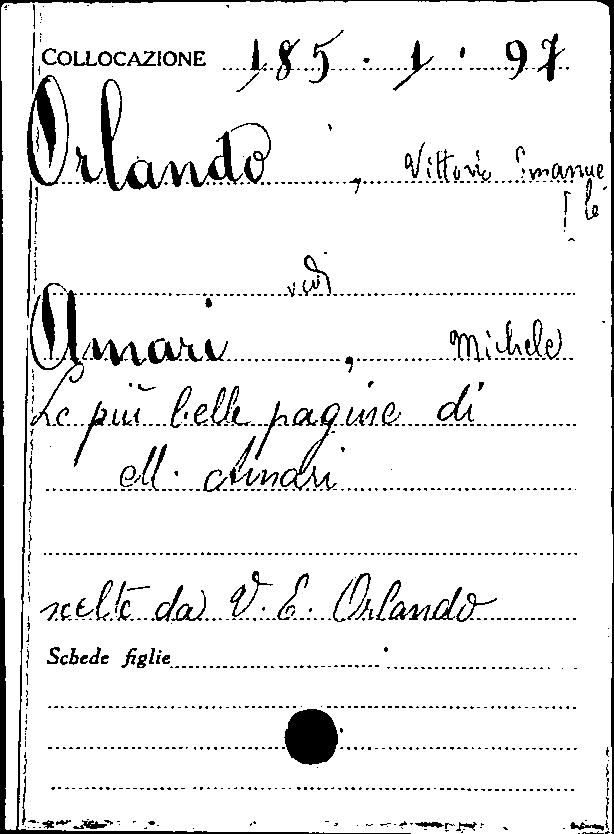 COLLOCAZIONE 185.1.97
Orlando, Vittorio Emanue
[le
vedi
Amari, Michele
Le più belle pagine di
M. Amari
scelte da V. E. Orlando
Schede figlie